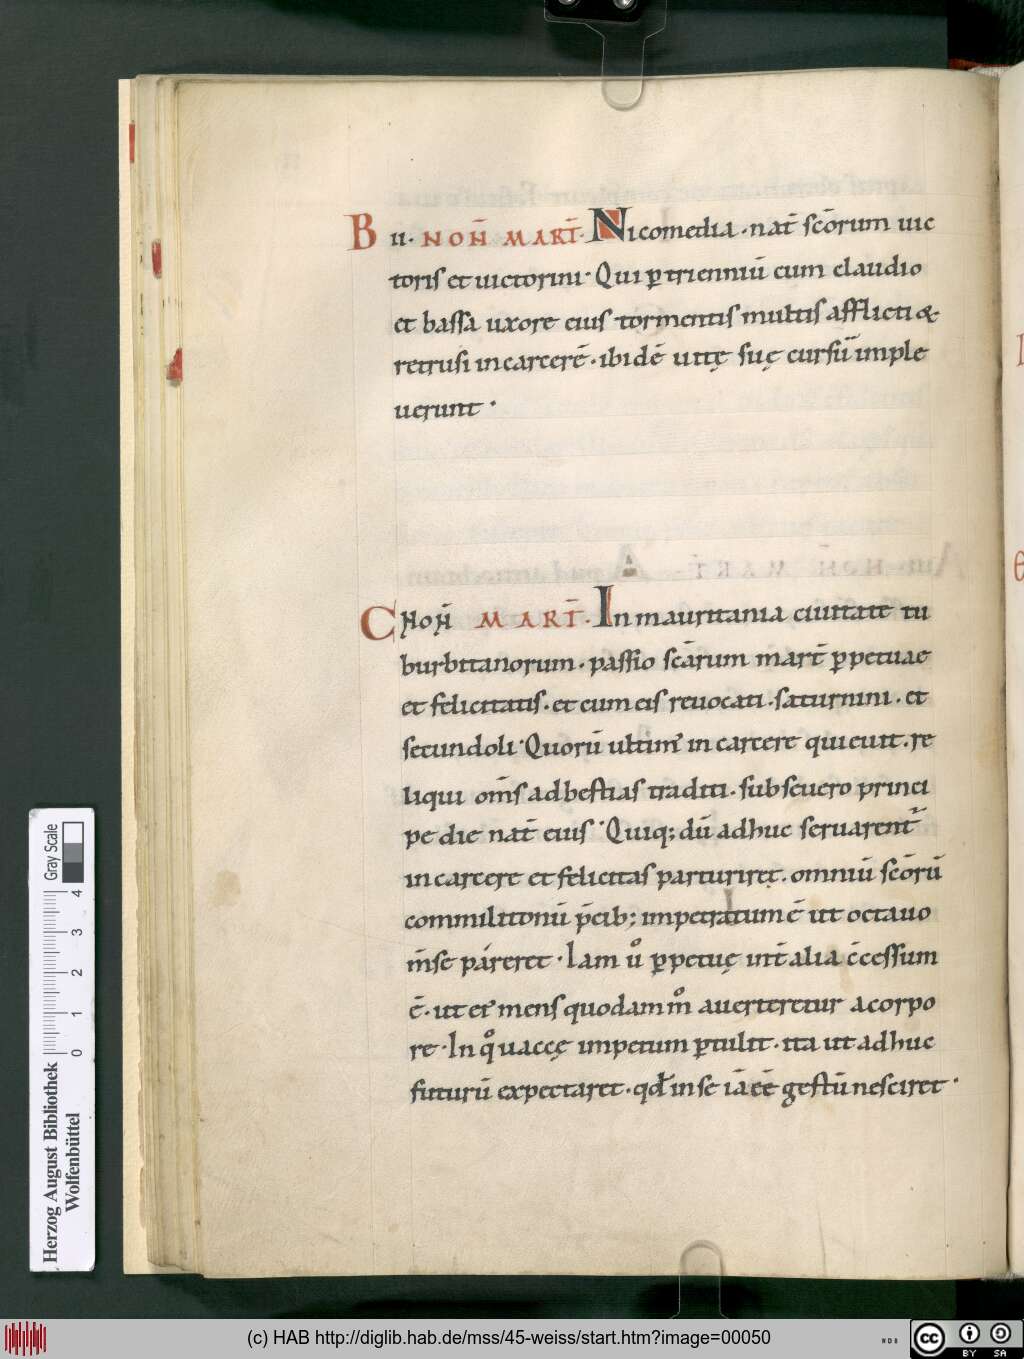 B ii· NON̄ MART̄· Nicomedia · nat̄ sc̄orum uic
toris et uictorini · Qui ꝑ trienniū cum claudio
et bassa uxore eius tormentis multis afflicti &
retrusi in carcerē · ibidē uitę suę cursū imple
uerunt ·
C NON̄ MART̄· In mauritania ciuitate tu
burbitanorum · passio sc̄arum mart̄ ꝑpetuae
et felicitatis · et cum eis reuocati · saturnini · et
secundoli · Quorū ultim᾽ in carcere quieuit · re
liqui om̄s ad bestias traditi · sub seuero princi
pe die nat̄ eius · Quiq; dū adhuc seruarent᷑
in carcere et felicitas parturiret · omniū sc̄orū
commilitonū p̄cib; impetratum ē ut octauo
m̄se páreret · Iam uͦ ꝑpetuę int̄ alia c̄cessum
ē · ut ei᾽ mens quodam mͦ auerteretur a corpo
re · In qͦ uaccę impetum ꝑtulit · ita ut adhuc
futurū expectaret · qd̄ in se iā eē gestū nesciret ·
Herzog August Bibliothek
Wolfenbüttel
Gray Scale
0 1 2 3 4
(c) HAB http://diglib.hab.de/mss/45-weiss/start.htm?image=00050
cc BY SA